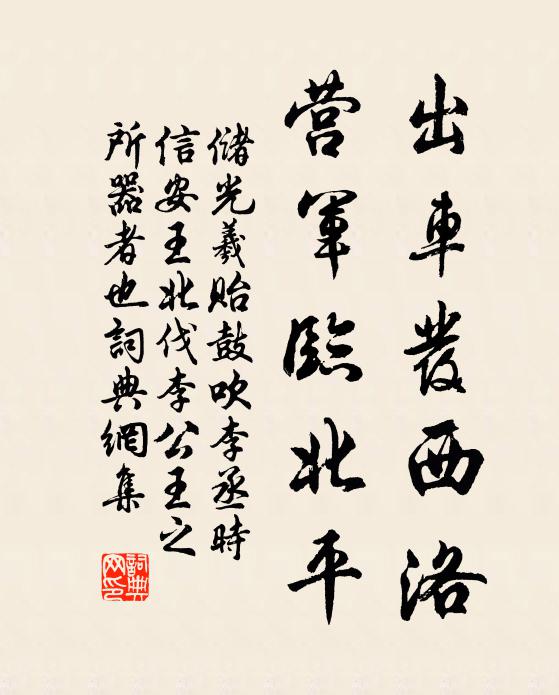 出車發西洛
营軍臨北平
儲光羲貽鼓吹李丞時
信安王北伐李公王之
所器者也詞典網集
詞典網印